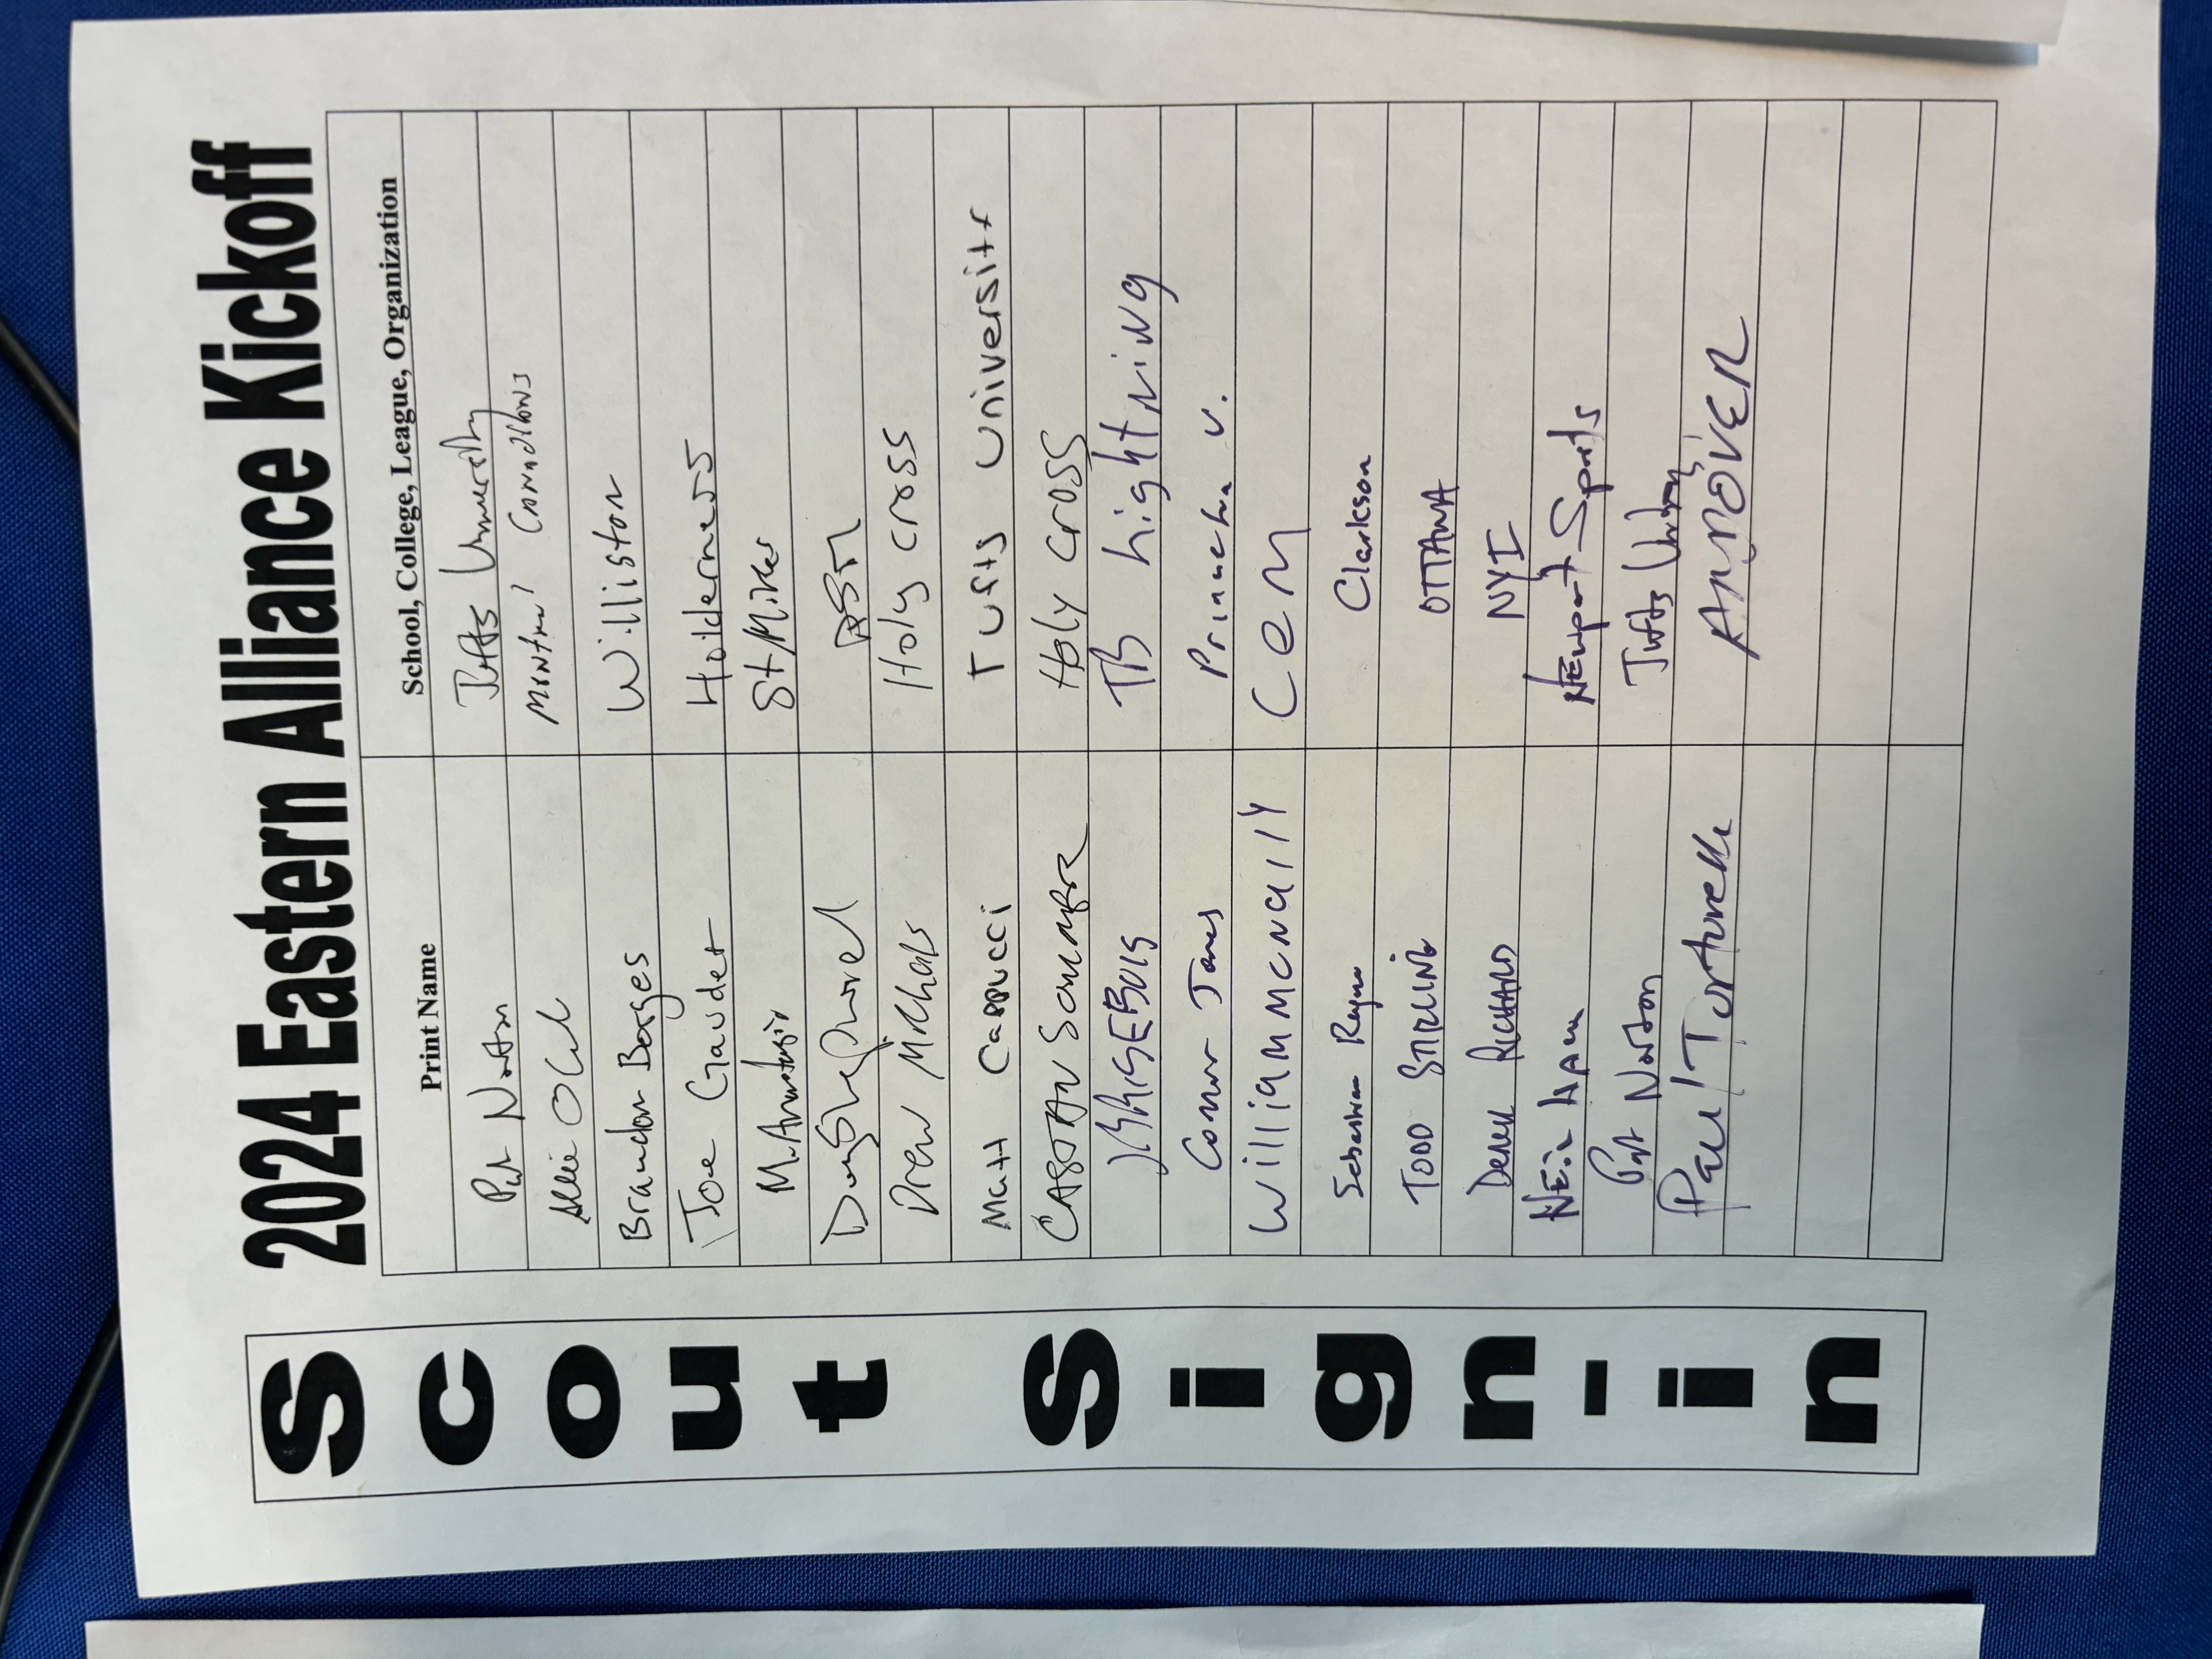 2024 Eastern Alliance Kickoff
Scout Sign-in
Print Name School, College, League, Organization
Pat Norton Tufts University
Allie Montreal Canadiens
Brandon Borges Williston
Joe Gaudet Holderness
St Mikes
Doug
Drew Michals Holy Cross
Matt Cappucci Tufts University
Holy Cross
TB Lightning
Connor Jones Princeton U.
William McNally CCM
Sebastian Clarkson
TODD STIRLING OTTAWA
Derek RICHARD NYI
NEiL Newport Sports
Pat Norton Tufts University
Paul Tortorella ANDOVER